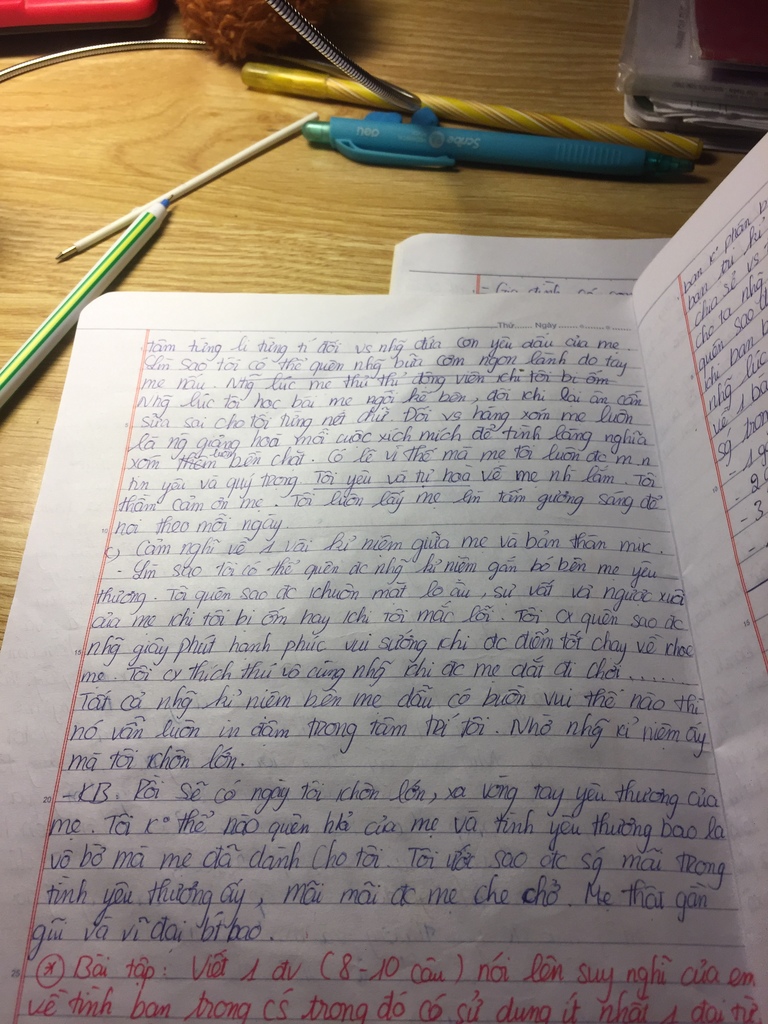 Scribe
deli
Thứ....... Ngày.......
tâm từng li từng tí đối vs nhg̃ đứa con yêu dấu của mẹ
Lm̀ sao tôi có thể quên nhg̃ bữa cơm ngon lành do tay
mẹ nấu. Nhg̃ lúc mẹ thủ thỉ động viên khi tôi bị ốm
Nhg̃ lúc tôi học bài mẹ ngồi kế bên, đôi khi lại ân cần
sửa sai cho tôi từng nét chữ. Đối vs hàng xóm mẹ luôn
là ng giảng hoà mỗi cuộc xích mích để tình làng nghĩa
xóm luôn bền chặt. Có lẽ vì thế mà mẹ tôi luôn đc m.n
hn yêu và quý trọng. Tôi yêu và tự hoà về mẹ nh lắm. Tôi
thầm cảm ơn mẹ. Tôi luôn lấy mẹ lm̀ tấm gương sáng để
noi theo mỗi ngày.
c) Cảm nghĩ về 1 vài kỉ niệm giữa mẹ và bản thân mk.
- Lm̀ sao tôi có thể quên đc nhg̃ kỉ niệm gắn bó bên mẹ yêu
thương. Tôi quên sao đc khuôn mặt lo âu, sự vất vả ngược xuôi
của mẹ khi tôi bị ốm hay khi tôi mắc lỗi. Tôi cx quên sao đc
nhg̃ giây phút hạnh phúc vui sướng khi đc điểm tốt chạy về khoe
mẹ. Tôi cx thích thú vô cùng nhg̃ khi đc mẹ dắt đi chơi.......
Tất cả nhg̃ kỉ niệm bên mẹ dẫu có buồn vui thế nào thì
nó vẫn luôn in đậm trong tâm trí tôi. Nhờ nhg̃ kỉ niệm ấy
mà tôi khôn lớn.
- KB: Rồi sẽ có ngày tôi khôn lớn, xa vòng tay yêu thương của
mẹ. Tôi k° thể nào quên hả của mẹ và tình yêu thương bao la
vô bờ mà mẹ đã dành cho tôi. Tôi ước sao đc sg̃ mãi trong
tình yêu thương ấy, mãi mãi đc mẹ che chở. Mẹ thật gần
gũi và vĩ đại bt́ bao.
* Bài tập: Viết 1 đv (8-10 câu) nói lên suy nghĩ của em
về tình bạn trong cś trong đó có sử dụng ít nhất 1 đại từ